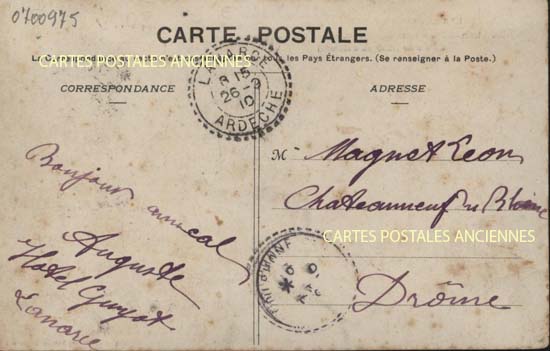 0700975
CARTE POSTALE
CARTES POSTALES ANCIENNES
tous les Pays Étrangers. (Se renseigner à la Poste.)
CORRESPONDANCE
ADRESSE
LANARCE
8 15
26-9
10
ARDÈCHE
Bonjour amical
Auguste
Hotel Guyot
Lanarce
M Magnet Leon
Chateauneuf du Rhône
CARTES POSTALES ANCIENNES
Drôme